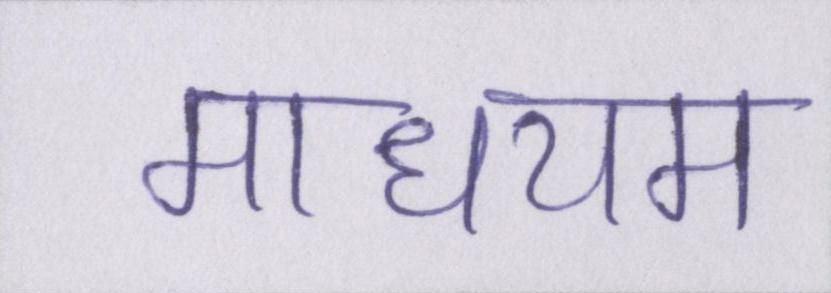 माधयम